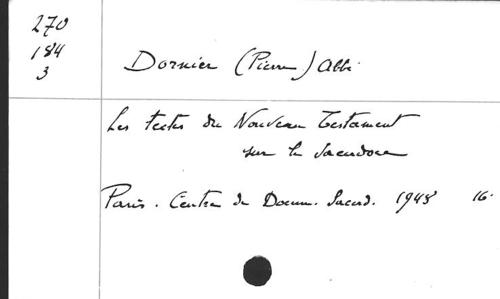 270
184
3
Dornier (Pierre) Abbé
Les textes du Nouveau Testament
sur le sacerdoce
Paris. Centre de Docum. Sacerd. 1948 16°